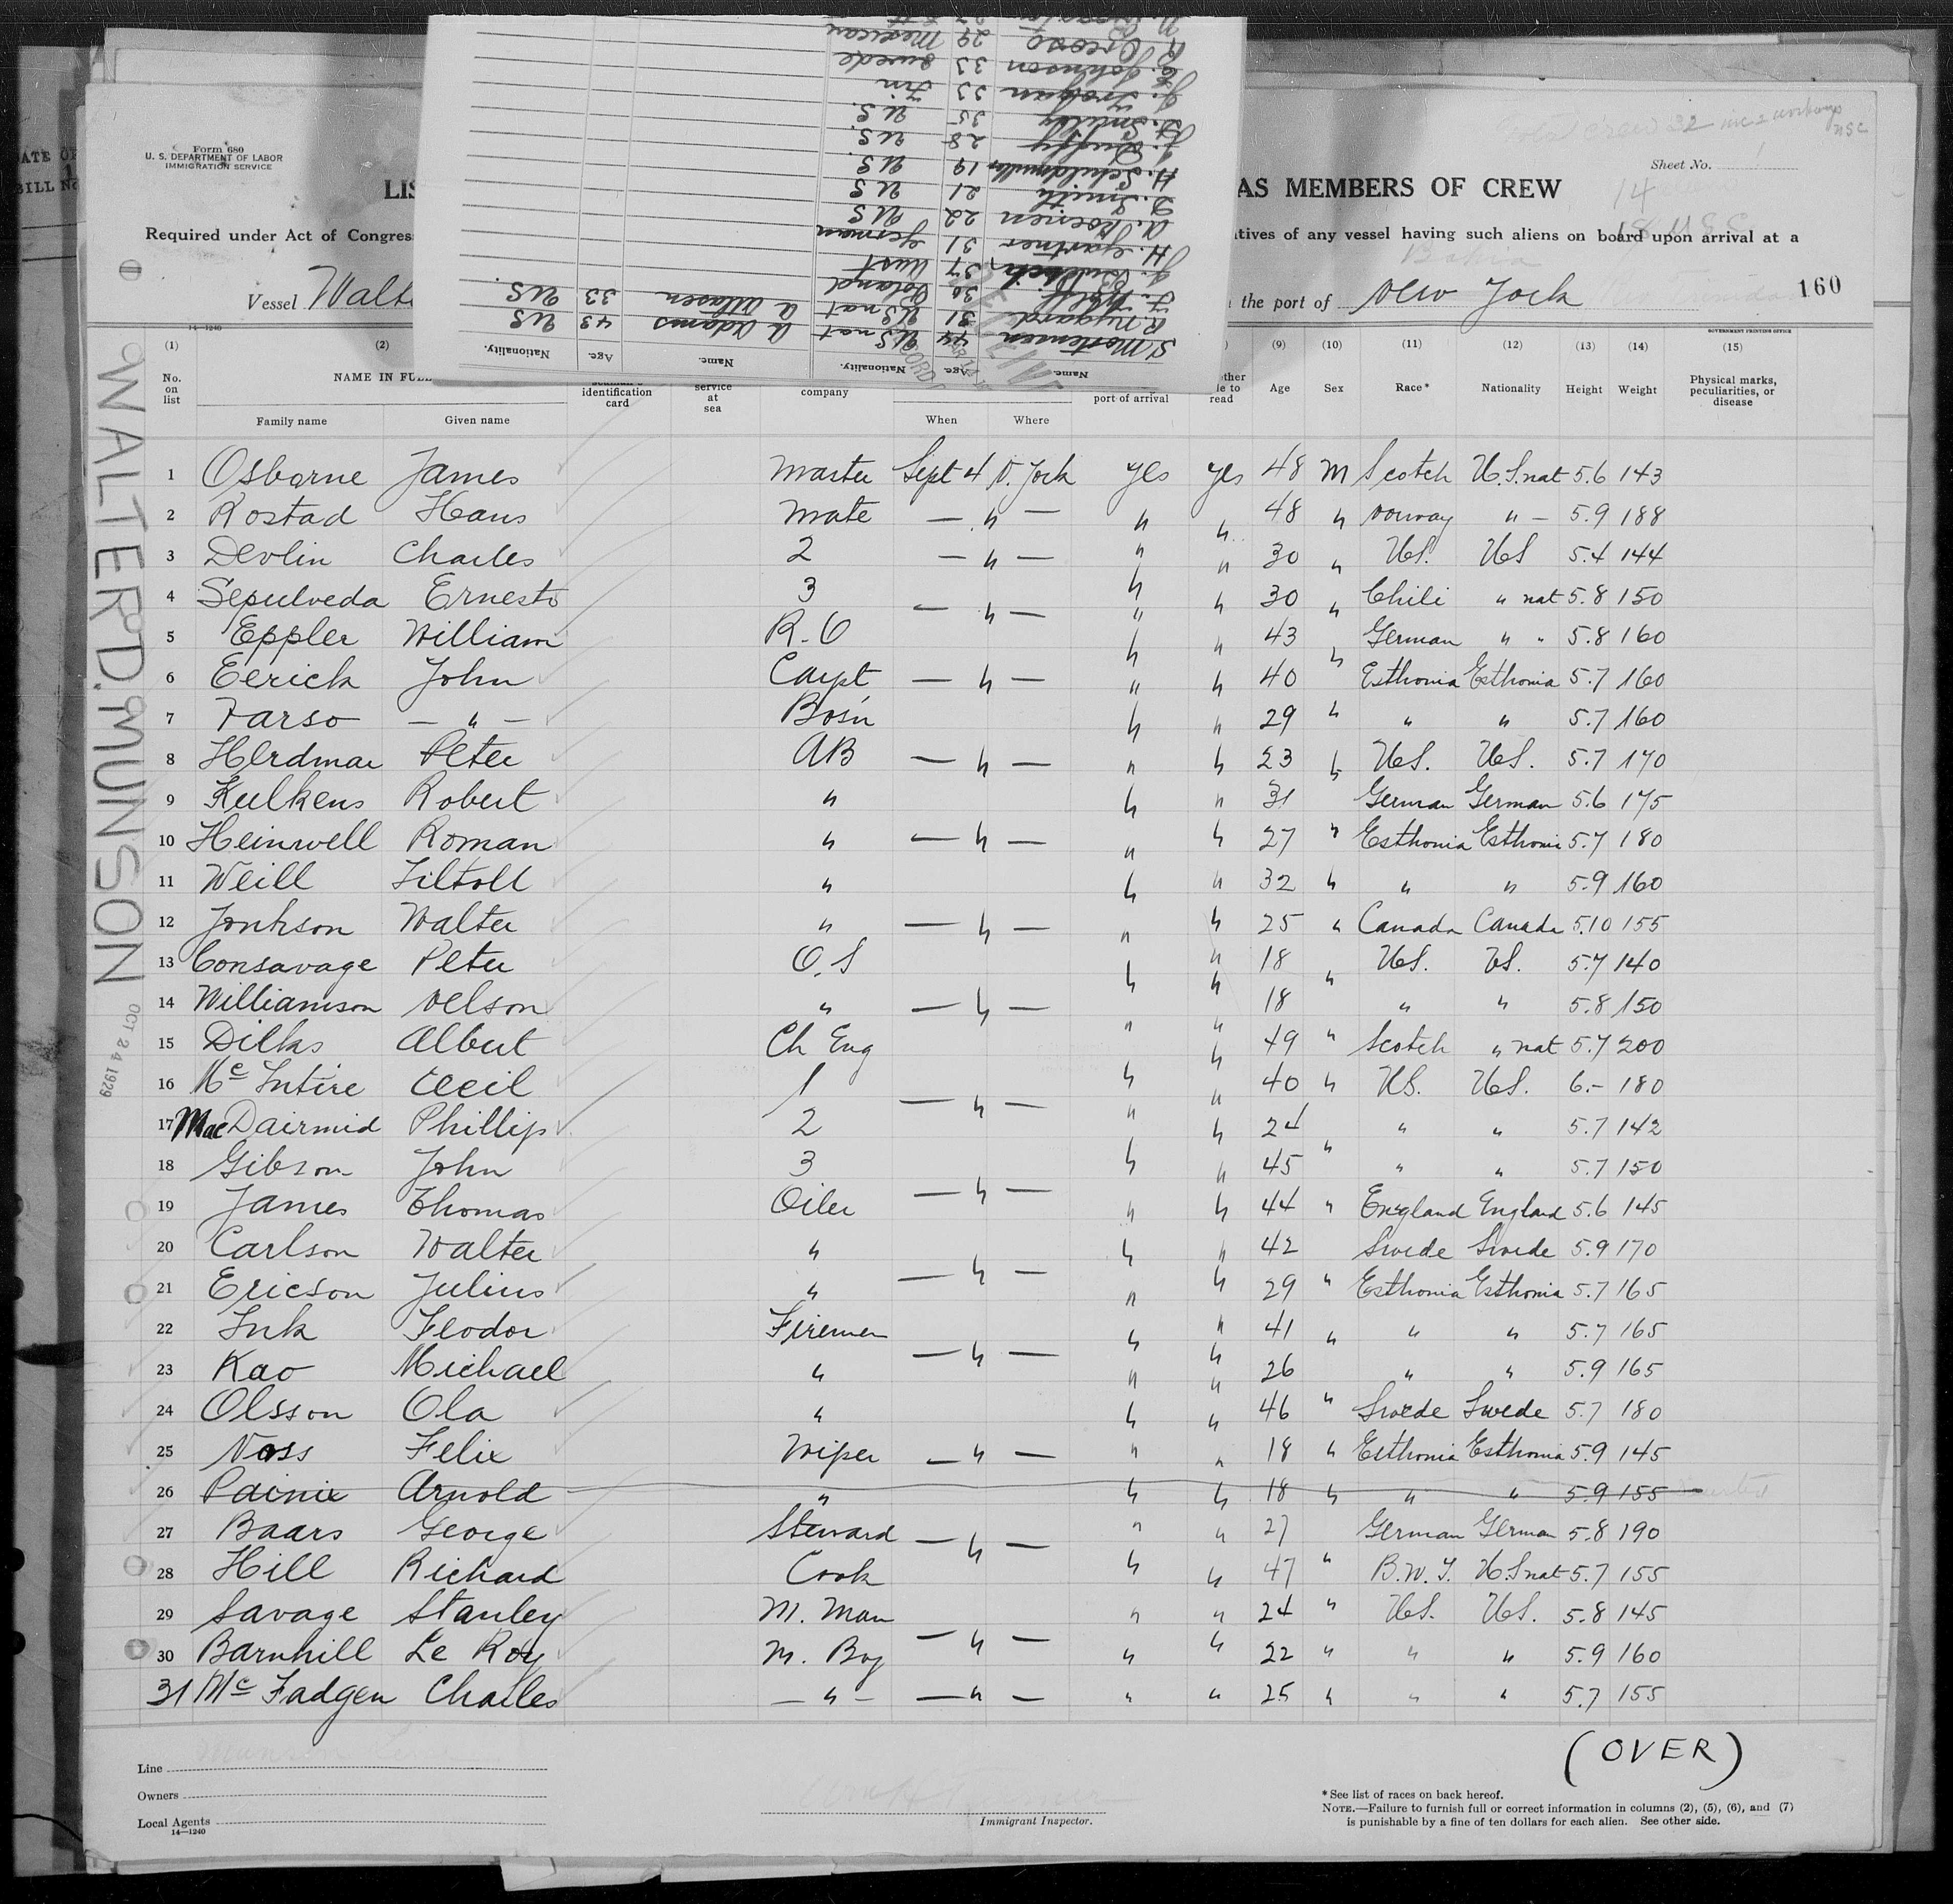 Form 680
U. S. DEPARTMENT OF LABOR
IMMIGRATION SERVICE
Sheet No.
LIS AS MEMBERS OF CREW
14
Required under Act of Congres tatives of any vessel having such aliens on board upon arrival at a
Vessel Walte the port of New York 160
14-1240 GOVERNMENT PRINTING OFFICE
(1) (2) (9) (10) (11) (12) (13) (14) (15)
No. on list NAME IN FULL identification card service at sea company port of arrival read Age Sex Race* Nationality Height Weight Physical marks, peculiarities, or disease
Family name Given name When Where
Name. Age. Nationality. Name. Age. Nationality.
S. Mortensen 44 US nat A Adams 43 US
R. Nygard 31 US nat A Olasen 33 US
30 Poland
37 Aust
H. Gartner 31 German
A. Koenen 22 US
D. Smith 21 US
H. Schuldmuller 19 US.
J. Duffy 28 US.
D. Smiley 35 US.
33 Fin
E. Johnson 33 Swede
R. Orcoso 29 Mexican
WALTER D. MUNSON
OCT 24 1929
1 Osborne James Master Sept 4 N. York yes yes 48 M Scotch U.S. nat 5.6 143
2 Rostad Hans Mate — " — " " 48 " Norway " — 5.9 188
3 Devlin Charles 2 — " — " " 30 " US. US 5.4 144
4 Sepulveda Ernesto 3 — " — " " 30 " Chili " nat 5.8 150
5 Eppler William R.O " " 43 " German " " 5.8 160
6 Eerick John Carpt — " — " " 40 Esthonia Esthonia 5.7 160
7 Tarso — " — Bosn " " 29 " " " 5.7 160
8 Herdmar Peter AB — " — " " 23 " US. US. 5.7 170
9 Kulkens Robert " " " 31 German German 5.6 175
10 Heinwell Roman " — " — " " 27 " Esthonia Esthonia 5.7 180
11 Weill " " " 32 " " " 5.9 160
12 Jonhson Walter " — " — " " 25 " Canada Canada 5.10 155
13 Consavage Peter O.S " " 18 " US. US. 5.7 140
14 Williamson Nelson " — " — " 18 " " 5.8 150
15 Dilks Albert Ch Eng " " 49 " Scotch " nat 5.7 200
16 McIntire Cecil 1 — " — " " 40 " US. US. 6.- 180
17 MacDairmid Phillip 2 " " 24 " " 5.7 142
18 Gibson John 3 " " 45 " " " 5.7 150
19 James Thomas Oiler — " — " " 44 " England England 5.6 145
20 Carlson Walter " " " 42 Swede Swede 5.9 170
21 Ericson Julius " — " — " " 29 " Esthonia Esthonia 5.7 165
22 Ink Feodor Firemen " " 41 " " " 5.7 165
23 Kao Michael " — " — " " 26 " " 5.9 165
24 Olsson Ola " " " 46 " Swede Swede 5.7 180
25 Noss Felix Wiper — " — " " 18 " Esthonia Esthonia 5.9 145
26 Painie Arnold " " " 18 " " " 5.9 155
27 Baars George Steward — " — " " 27 German German 5.8 190
28 Hill Richard Cook " " 47 " B.W.I. U.S nat 5.7 155
29 Savage Stanley M. Man " " 24 " US. US. 5.8 145
30 Barnhill Le Roy M. Boy — " — " " 22 " " " 5.9 160
31 McFadgen Charles — " — — " — " " 25 " " " 5.7 155
(OVER)
Line
Owners
Local Agents
14—1240
Immigrant Inspector.
* See list of races on back hereof.
NOTE.—Failure to furnish full or correct information in columns (2), (5), (6), and (7)
is punishable by a fine of ten dollars for each alien. See other side.